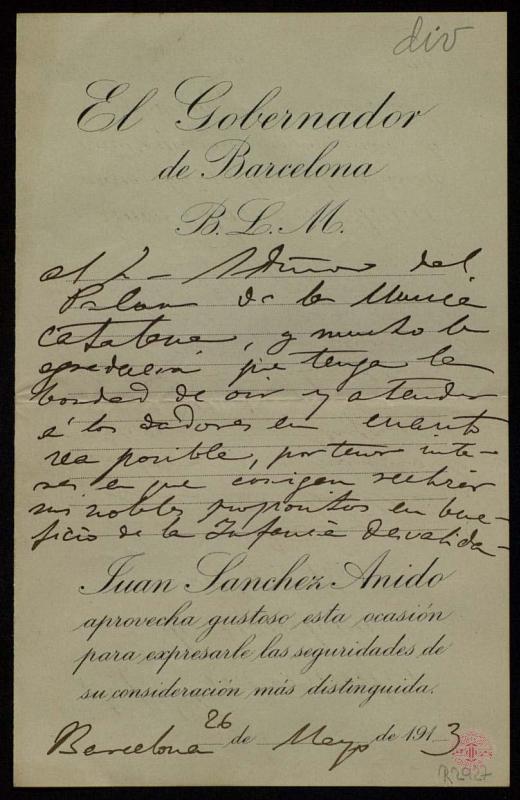 div
El Gobernador
de Barcelona
B. L. M.
al Sr. del
Palau de la Musica
Catalana, y mucho le
agradecerá que tenga la
bondad de oir y atender
á los dadores en cuanto
sea posible, por tener inte-
res en que consigan
sus nobles propositos en bene-
ficio de la Infancia desvalida
Juan Sanchez Anido
aprovecha gustoso esta ocasión
para expresarle las seguridades de
su consideración más distinguida.
Barcelona 26 de Mayo de 1913
R2927